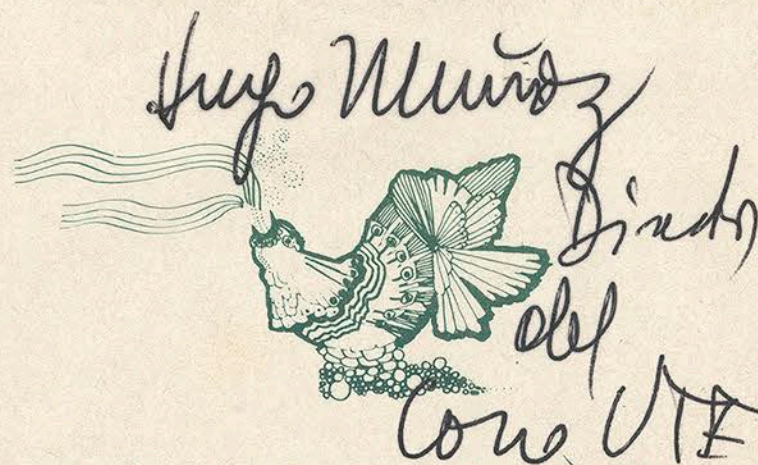 Hugo Muñoz
Director
del
Coro UTE